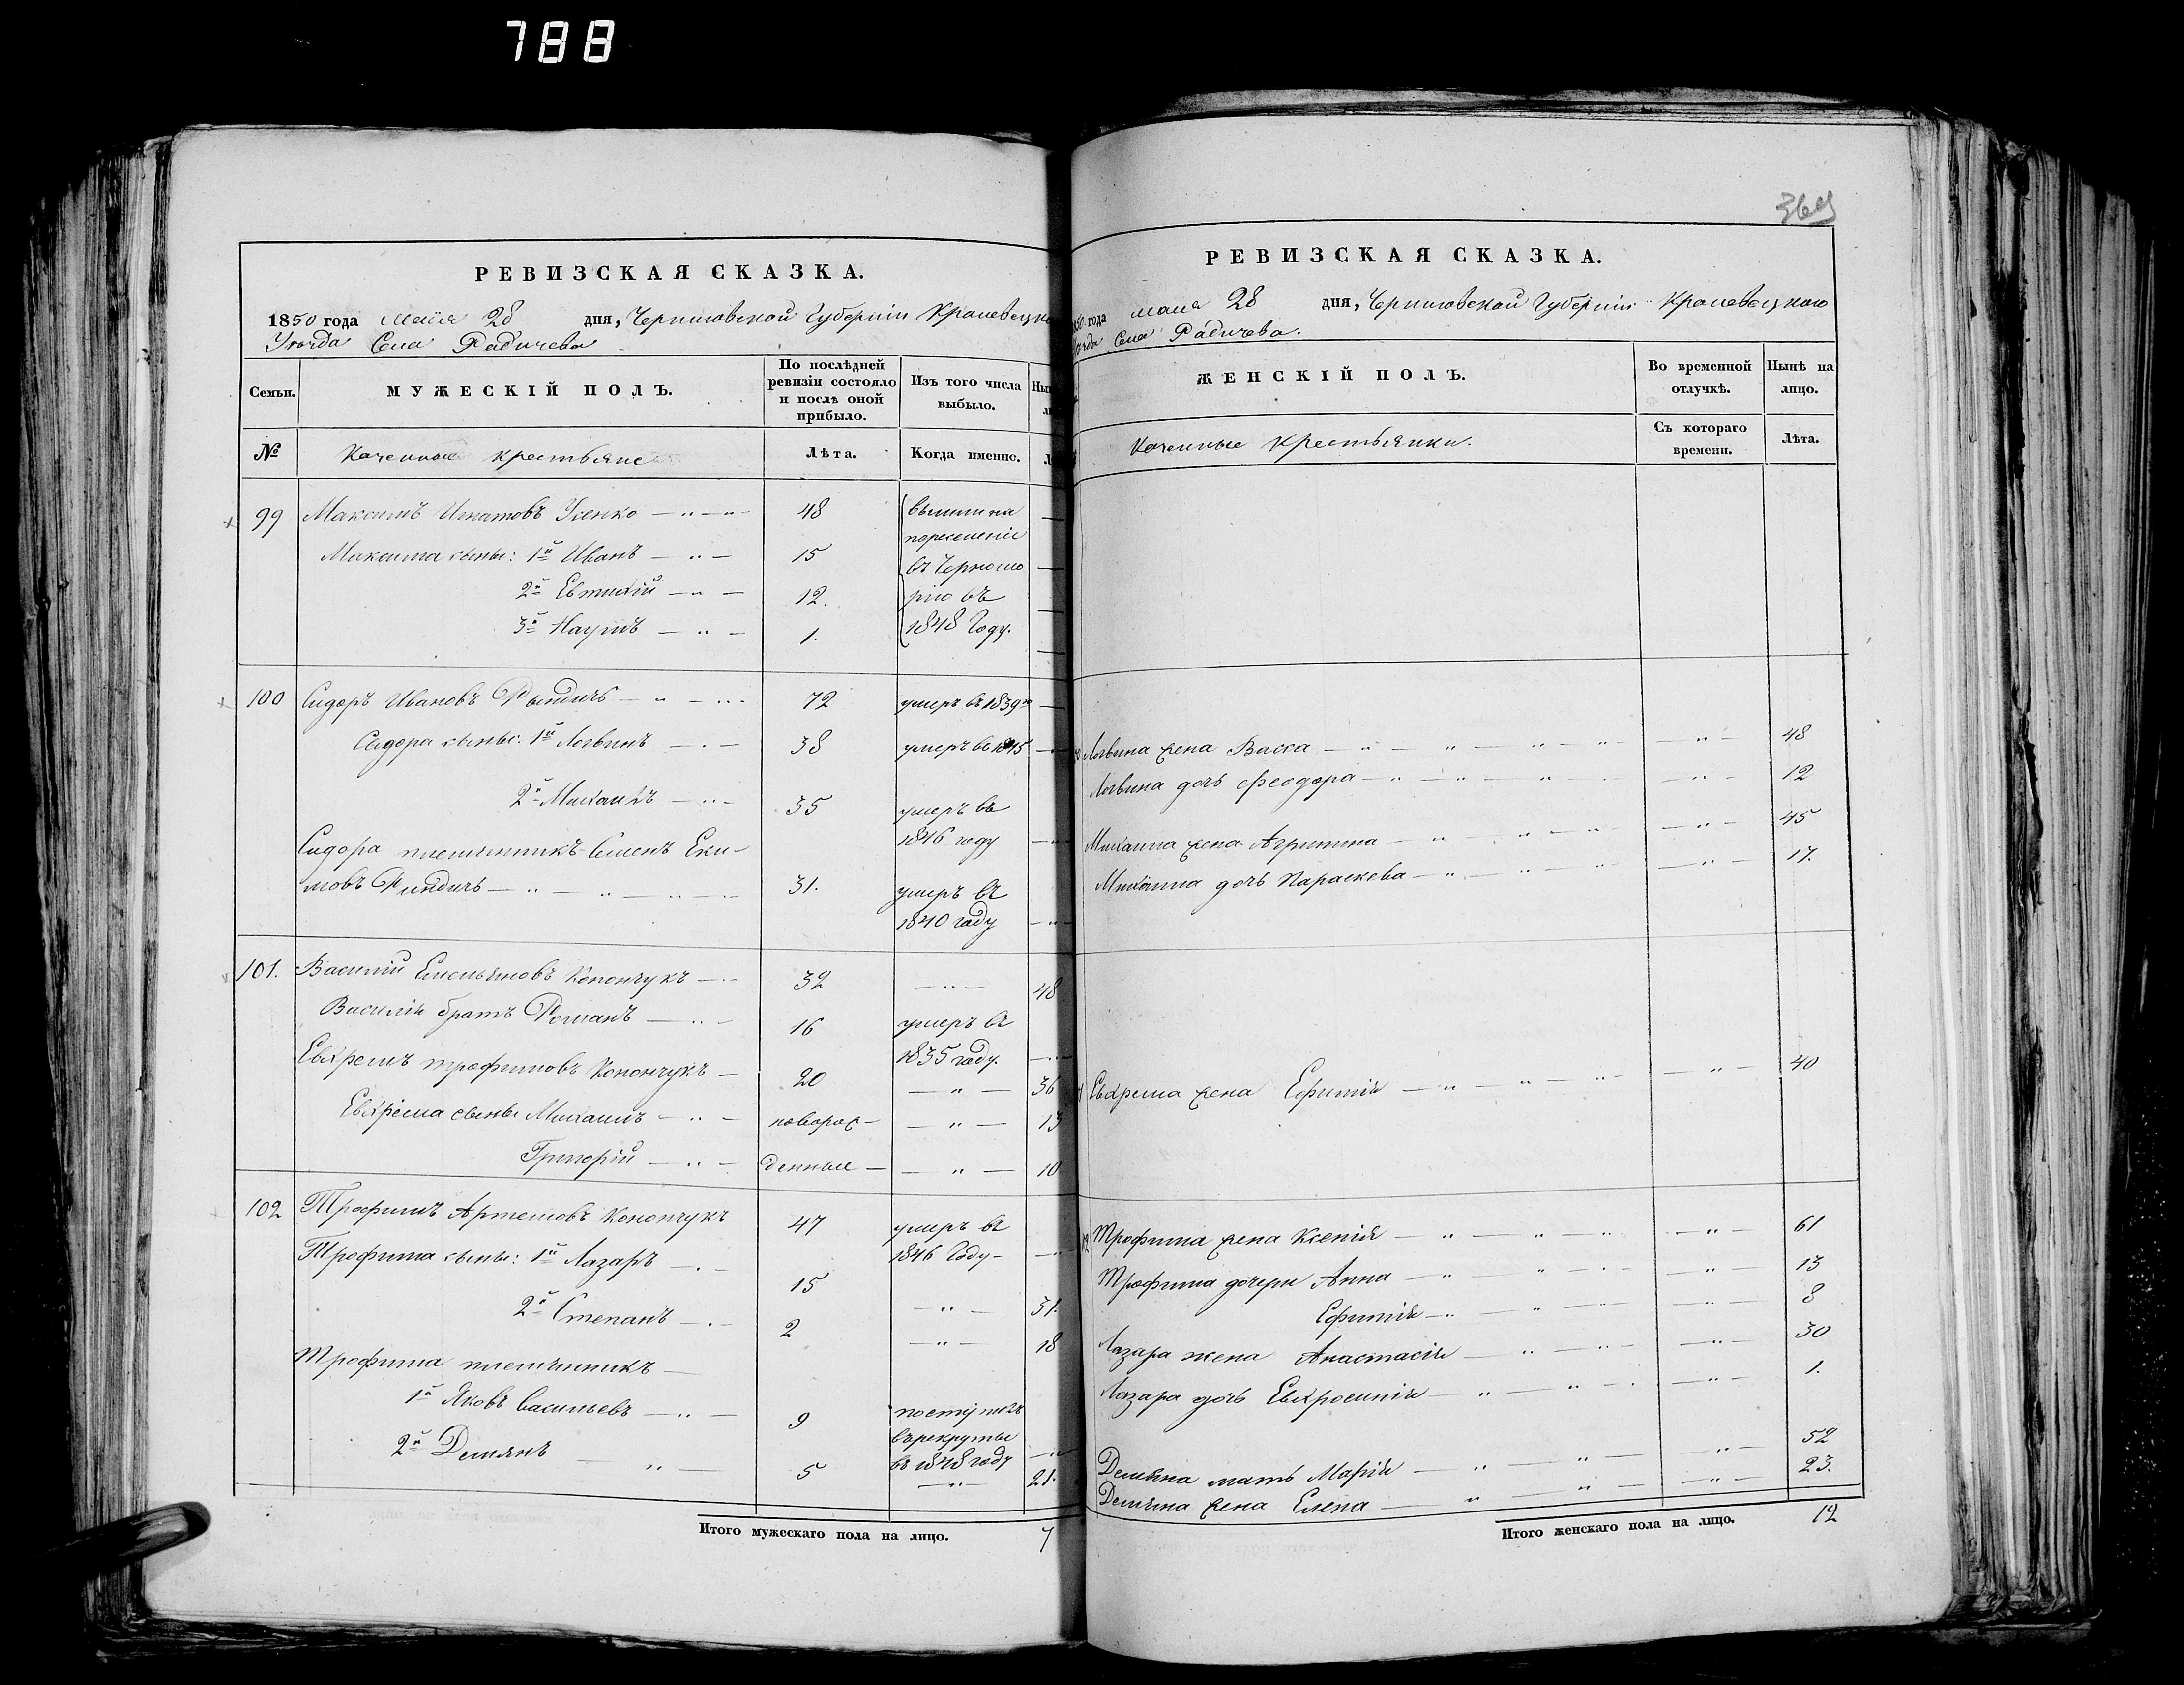 788
РЕВИЗСКАЯ СКАЗКА.
1850 года Маія 28 дня, Черниговской Губерніи Кролевецка
Уѣзда Села Радичева
Семьи.
МУЖЕСКІЙ ПОЛЪ.
По послѣдней
ревизіи состояло
и послѣ оной
прибыло.
Изъ того числа
выбыло.
№
Казенные крестьяне
Лѣта.
Когда именно.
99 Максимъ Игнатовъ Усенко — " — " 48 вышли на
переселеніе
Максима сыны: 1й Иванъ — " — 15 въ Черномо
2й Евтихій — " — 12. рію въ
3й Наумъ — " — 1. 1848 Году.
100 Сидоръ Ивановъ Рындичъ — " — " 72 умеръ въ 1839м
Сидора сыны: 1й Логвинъ — " — 38 умеръ въ 1845
2й Михаилъ — " — 35 умеръ въ
1846 году
Сидора племянникъ Семенъ Еки-
мовъ Риндичъ — " — " — " — 31. умеръ въ
1840 году
101. Василій Емельяновъ Конончукъ — " 32 — " — 48
Василія братъ Романъ — " — 16 умеръ въ
1835 году.
Евхремъ Трофимовъ Конончукъ — 20 — " — 36
Евхрема сыны Михаилъ — " — новорож- — " — 13
Григорій — " — денные — — " — 10
102 Трофимъ Артемовъ Конончукъ 47 умеръ въ
1846 Году —
Трофима сыны: 1й Лазарь — " — 15 — " — 31.
2й Степанъ — " — 2 — " — 18
Трофима племянникъ —
1й Яковъ Васильевъ — " — 9 поступилъ
въ рекруты
въ 1848 году
2й Демянъ — " — 5 — " — 21.
Итого мужескаго пола на лицо. 7
РЕВИЗСКАЯ СКАЗКА.
года маия 28 дня, Черниговской Губерніи Кролевецкого
Села Радичева.
ЖЕНСКІЙ ПОЛЪ.
Во временной
отлучкѣ.
Нынѣ на
лицо.
Казенные Крестьянки.
Съ котораго
времени.
Лѣта.
Логвина жена Васса — " — " — " — " — " — 48
Логвина дочь Феодора — " — " — " — " — 12
Михаила жена Агрипина — " — " — " — " — 45
Михаила дочь Параскева — " — " — " — " — 17.
Евхрема жена Ефимія — " — " — " — " — 40
Трофима жена Ксенія — " — " — " — " — 61
Трофима дочери Анна — " — " — " — " — 13
Ефимія — " — " — " — " — 8
Лазара жена Анастасія — " — " — " — 30
Лазара дочь Евхросинія — " — " — " — 1.
Демяна мать Марія — " — " — " — 52
Демяна жена Елена — " — " — " — 23.
Итого женскаго пола на лицо. 12